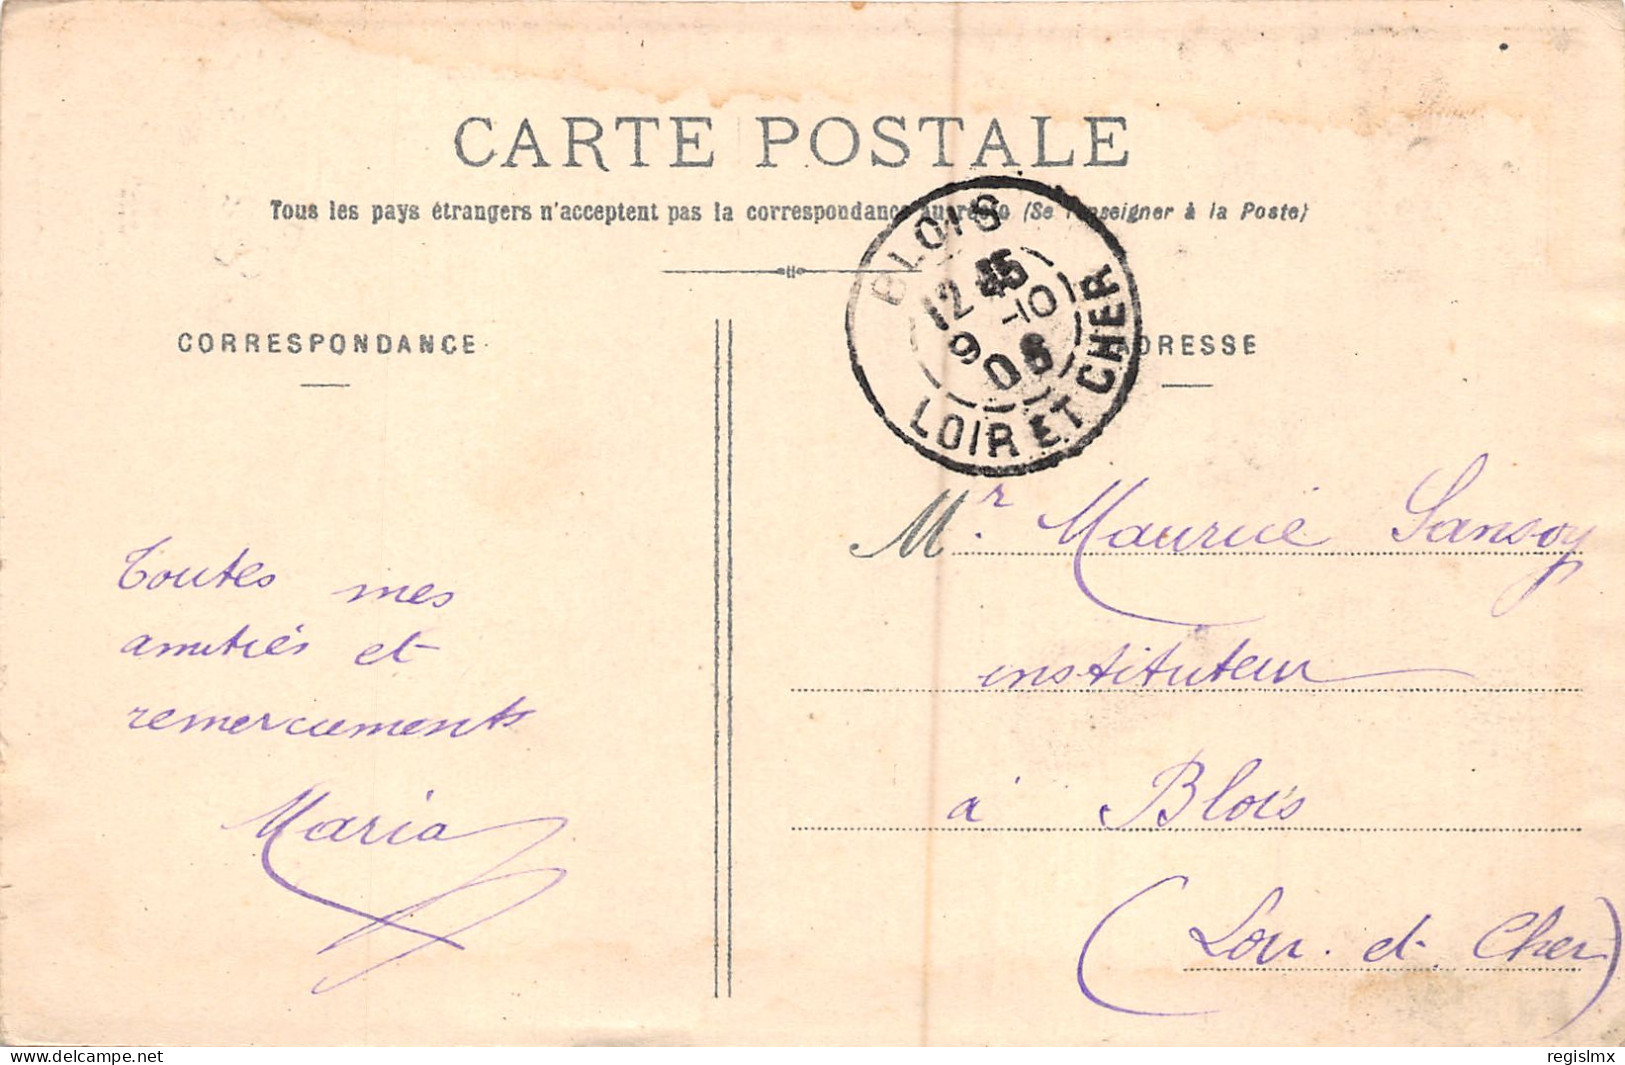 CARTE POSTALE
Tous les pays étrangers n'acceptent pas la correspondance au recto (Se renseigner à la Poste)
BLOIS
12 45
-10
9 06
LOIR ET CHER
CORRESPONDANCE
ADRESSE
Toutes mes
amitiés et
remerciements
Maria
Mr. Maurice Sansoy
instituteur
à Blois
(Loir. et. Cher)
www.delcampe.net
regislmx